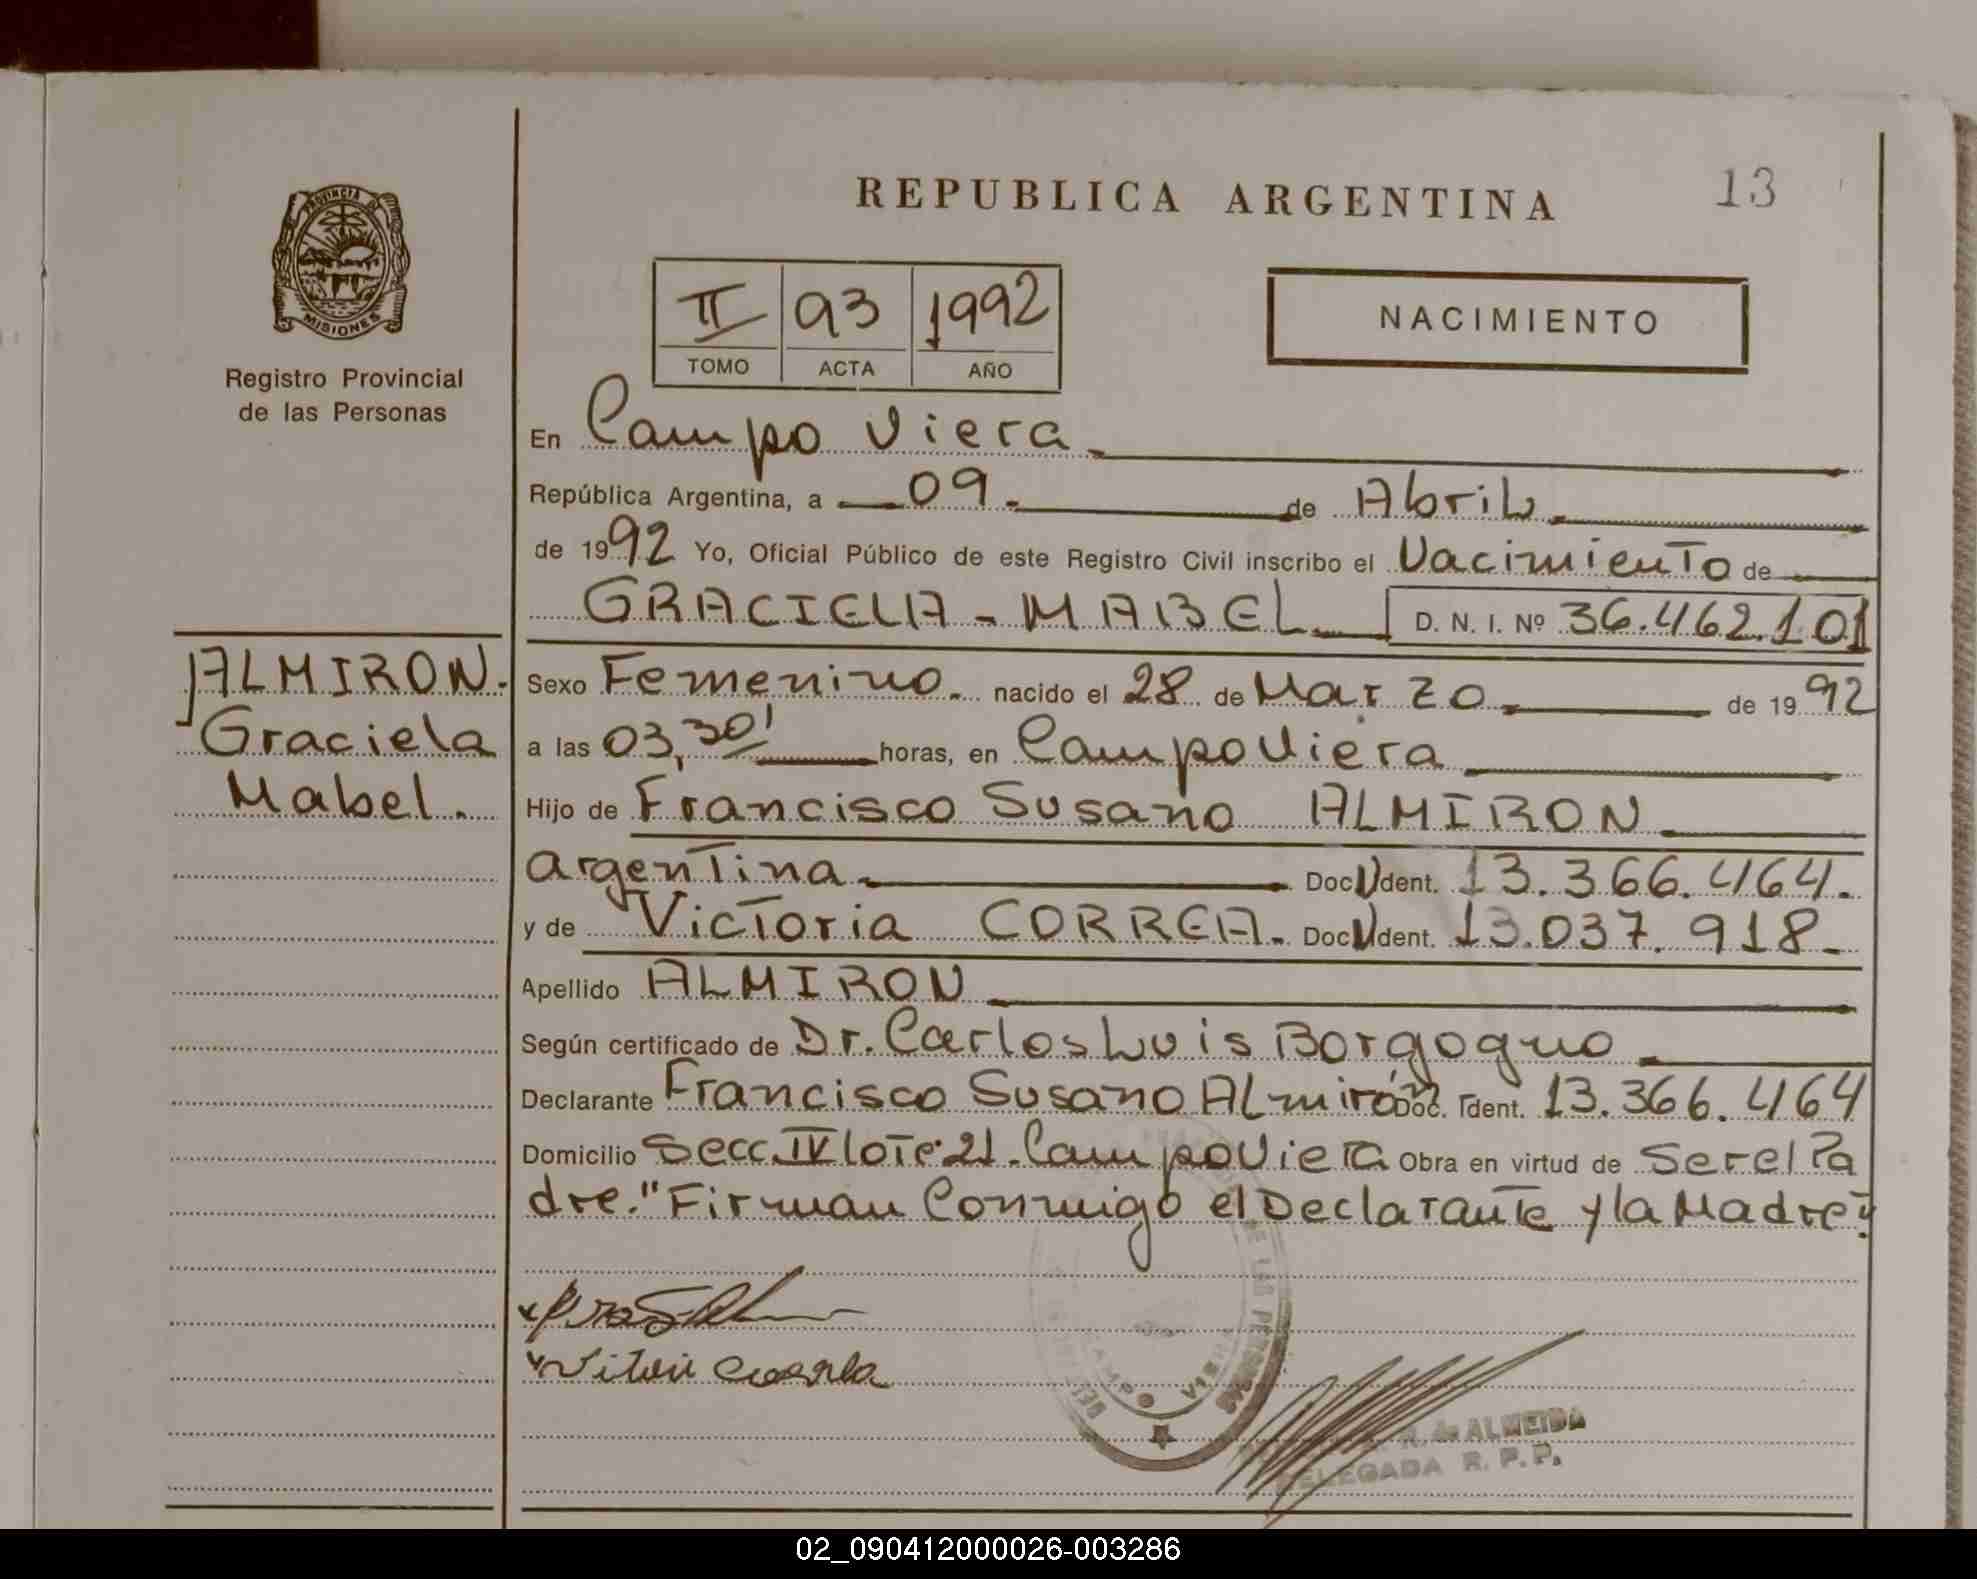 REPUBLICA ARGENTINA
13
PROVINCIA DE
MISIONES
Registro Provincial
de las Personas
II 93 1992
TOMO ACTA AÑO
NACIMIENTO
En Campo Viera
República Argentina, a 09. de Abril
de 1992 Yo, Oficial Público de este Registro Civil inscribo el Nacimiento de
GRACIELA - MABEL D. N. I. Nº 36.462.101
ALMIRON.
Graciela
Mabel.
Sexo Femenino. nacido el 28 de Marzo de 1992
a las 03,30' horas, en Campo Viera
Hijo de Francisco Susano ALMIRON
argentina. Doc. Ident. 13.366.464.
y de Victoria CORREA. Doc. Ident. 13.037.918.
Apellido ALMIRON
Según certificado de Dr. Carlos Luis Borgogno
Declarante Francisco Susano ALmirón Doc. Ident. 13.366.464
Domicilio Secc. IV lote 21. Campo Viera Obra en virtud de Ser el Pa
dre." Firman Conmigo el Declarante y la Madre"
DE LAS PERSONAS
CAMPO VIERA
R. de ALMEIDA
DELEGADA R. P. P.
02_090412000026-003286